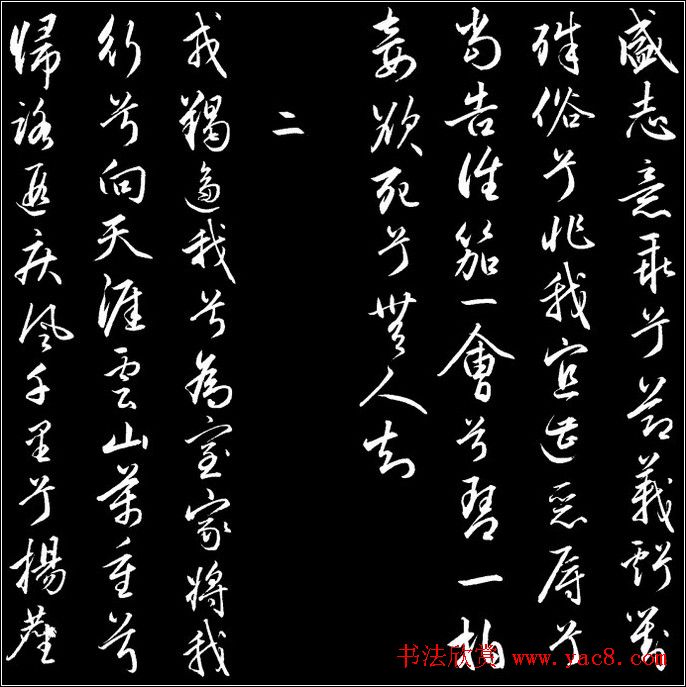 盛志意乖兮節義虧對
殊俗兮非我宜遭惡辱兮
當告誰笳一會兮琴一拍
妾欲死兮無人知
二
戎羯逼我兮為室家將我
行兮向天涯雲山萬重兮
歸路遐疾風千里兮揚塵
书法欣赏 www.yac8.com